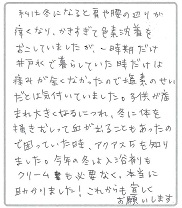 私は冬になると肩や腰の辺りが
痒くなり、かきすぎて色素沈着を
おこしていましたが、一時期だけ
井戸水で暮らしていた時だけは
痒みが全くなかったので塩素のせい
だとは気付いていました。子供が産
まれ大きくなるにつれ、冬に体を
掻きむしって血が出ることもあったの
で困っていた時、アクアスを知り
ました。今年の冬は入浴剤も
クリームも必要なく、本当に
助かりました！これからも宜しく
お願いします